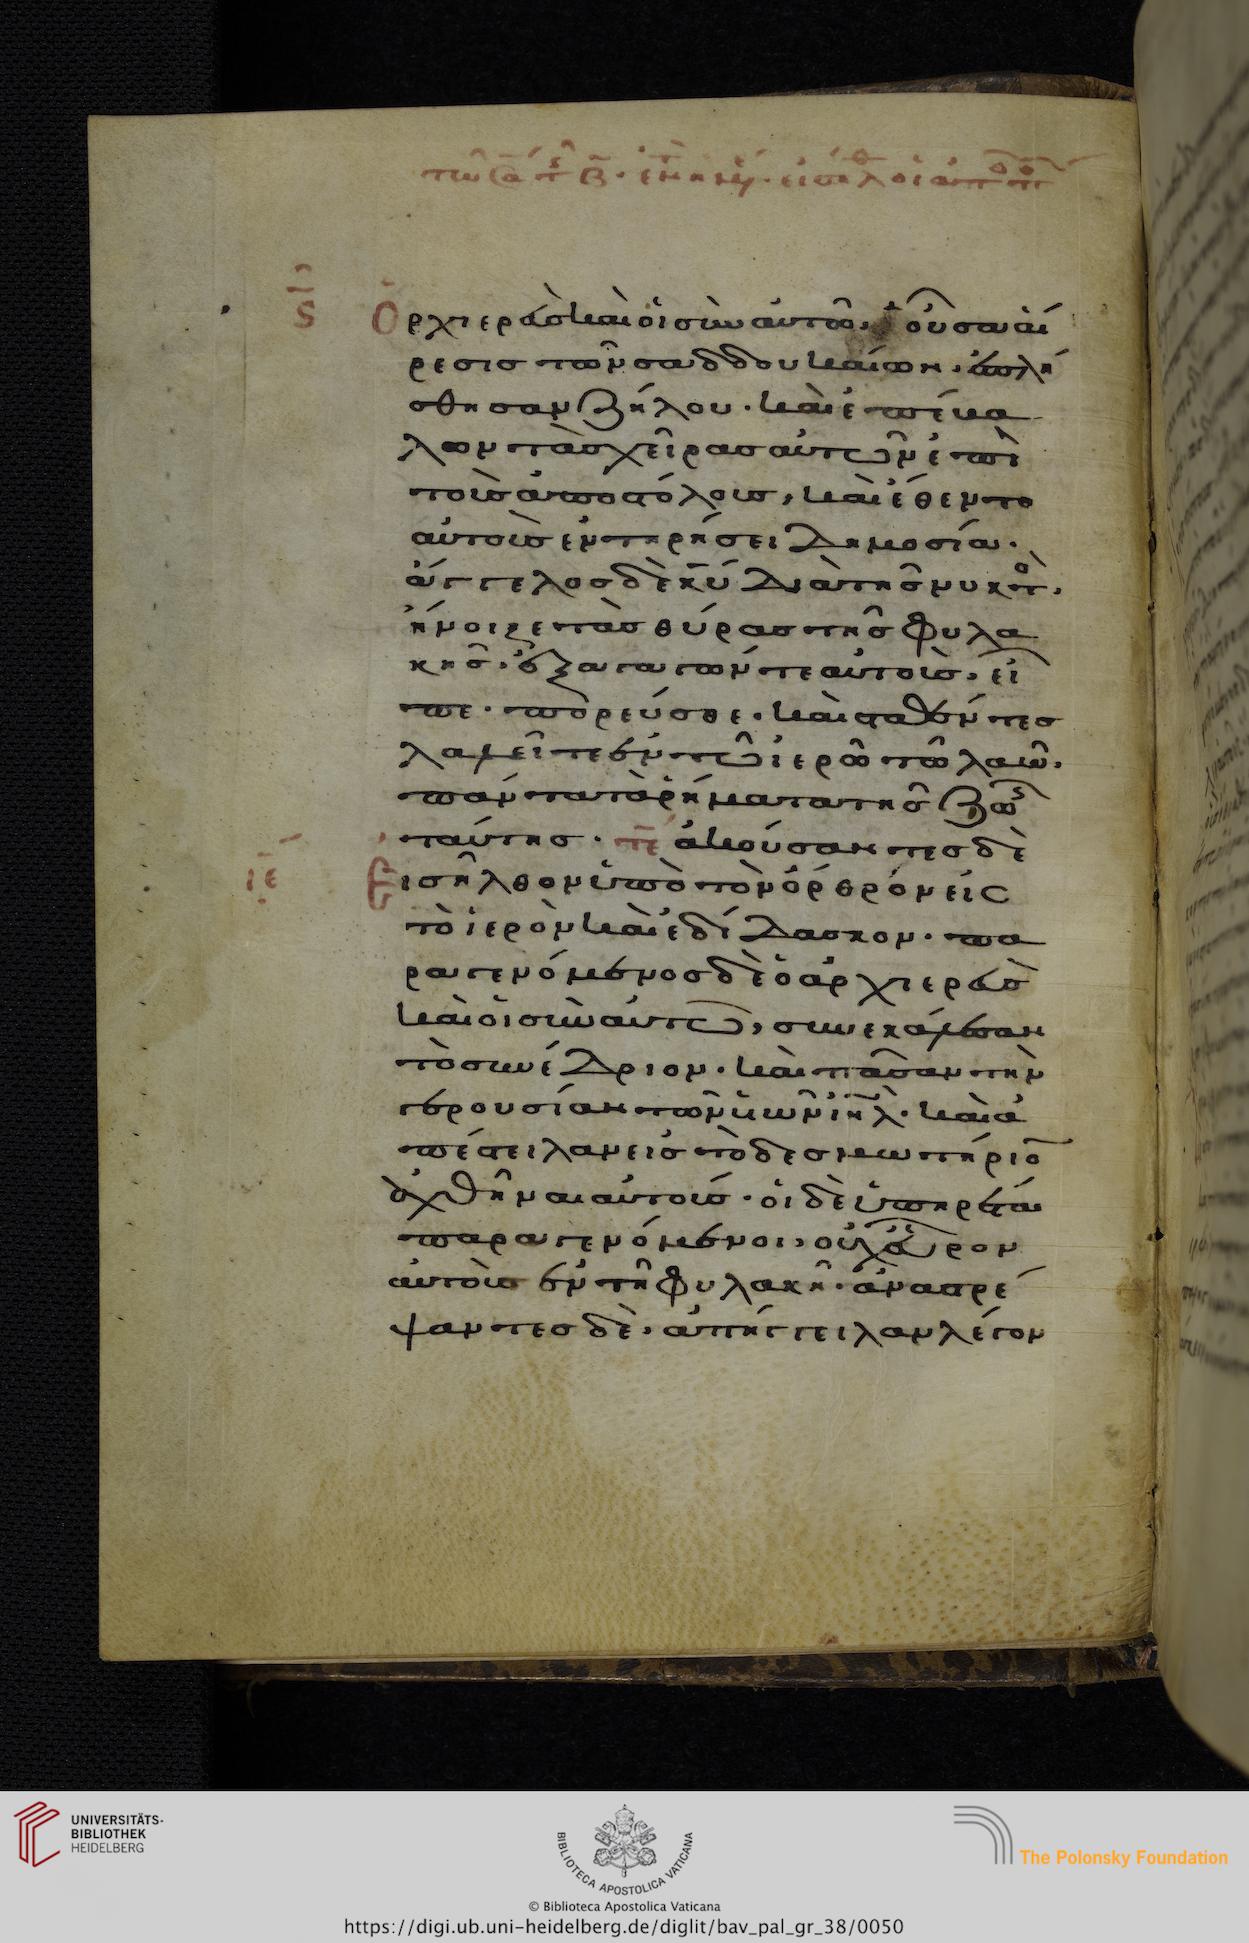 ρχιερεὺς καὶ οἱ σὺν αὐτῶ, ἡ οὖσα αἵ
ρεσις τῶν σαδδουκαίων. ἐπλή
σθησαν ζήλου. καὶ ἐπέβα
λλον τὰς χεῖρας αὐτῶν ἐπὶ
τοὺς ἀποστόλους, καὶ ἔθεντο
αὐτοὺς ἐν τηρήσει δημοσία.
ἄγγελος δὲ κ̅υ̅ διὰ τῆς νυκτὸ.
ἤνοιξε τὰς θύρας τῆς φυλα
κῆς. ἐξαγαγών τε αὐτοὺς. εἶ
πε. πορεύεσθε. καὶ σταθέντες
λαλεῖτε ἐν τῶ ἱερῶ τῶ λαῶ.
πάντα τὰ ῥήματα τῆς ζωῆς
ταύτης. τε ἀκούσαντες δὲ
ιε Εἰσῆλθον ὑπὸ τὸν ὄρθρον εἰς
τὸ ἱερὸν καὶ ἐδίδασκον. πα
ραγενόμενος δὲ ὁ ἀρχιερεὺς
καὶ οἱ σὺν αὐτῶ, συνεκάλεσαν
τὸ συνέδριον. καὶ πᾶσαν τὴν
γερουσίαν τῶν υἱῶν ι̅η̅λ̅. καὶ ἀ
πέστειλαν εἰς τὸ δεσμωτήριο
ἀχθῆναι αὐτούς. οἱ δὲ ὑπηρέται
παραγενόμενοι, οὐχ εὗρον
αὐτοὺς ἐν τῆ φυλακῆ. ἀναστρέ
ψαντες δὲ. ἀπήγγειλαν λέγον
UNIVERSITÄTS-
BIBLIOTHEK
HEIDELBERG
BIBLIOTECA APOSTOLICA VATICANA
The Polonsky Foundation
© Biblioteca Apostolica Vaticana
https://digi.ub.uni-heidelberg.de/diglit/bav_pal_gr_38/0050